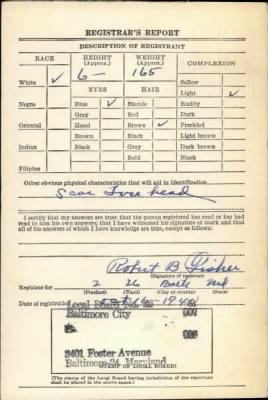 REGISTRAR'S REPORT
DESCRIPTION OF REGISTRANT
RACE HEIGHT (Approx.) WEIGHT (Approx.) COMPLEXION
White ✓ 6 – 165 Sallow
EYES HAIR Light ✓
Negro Blue ✓ Blonde Ruddy
Gray Red Dark
Oriental Hazel Brown ✓ Freckled
Brown Black Light brown
Indian Black Gray Dark brown
Bald Black
Filipino
Other obvious physical characteristics that will aid in identification
Scar head
I certify that my answers are true; that the person registered has read or has had
read to him his own answers; that I have witnessed his signature or mark and that
all of his answers of which I have knowledge are true, except as follows:
Robert B Fisher
(Signature of registrar)
Registrar for 2 26 Balto Md
(Precinct) (Ward) (City or county) (State)
Date of registration 16
Local Board No.
Baltimore City 007
3401 Foster Avenue
Baltimore 24 Maryland
(STAMP OF LOCAL BOARD)
(The stamp of the Local Board having jurisdiction of the registrant
shall be placed in the above space.)